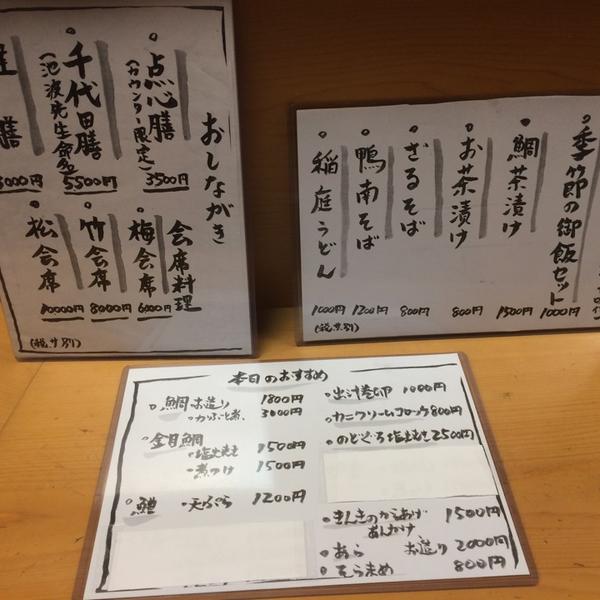 おしながき
点心膳
(カウンター限定)
3500円
千代田膳
(池波先生命名)
5500円
膳
会席料理
梅会席
6000円
竹会席
8000円
松会席
10000円
(税サ別)
季節の御飯セット
1000円
鯛茶漬け
1500円
お茶漬け
800円
ざるそば
800円
鴨南そば
1200円
稲庭うどん
1000円
(税サ別)
本日のおすすめ
鯛 お造り 1800円
かぶと煮 3000円
金目鯛
塩焼き 1500円
煮つけ 1500円
鱧 天ぷら 1200円
出汁巻卵 1000円
カニクリームコロッケ 800円
のどぐろ塩焼き 2500円
きんきのからあげ 1500円
あんかけ
あら お造り 2000円
そらまめ 800円